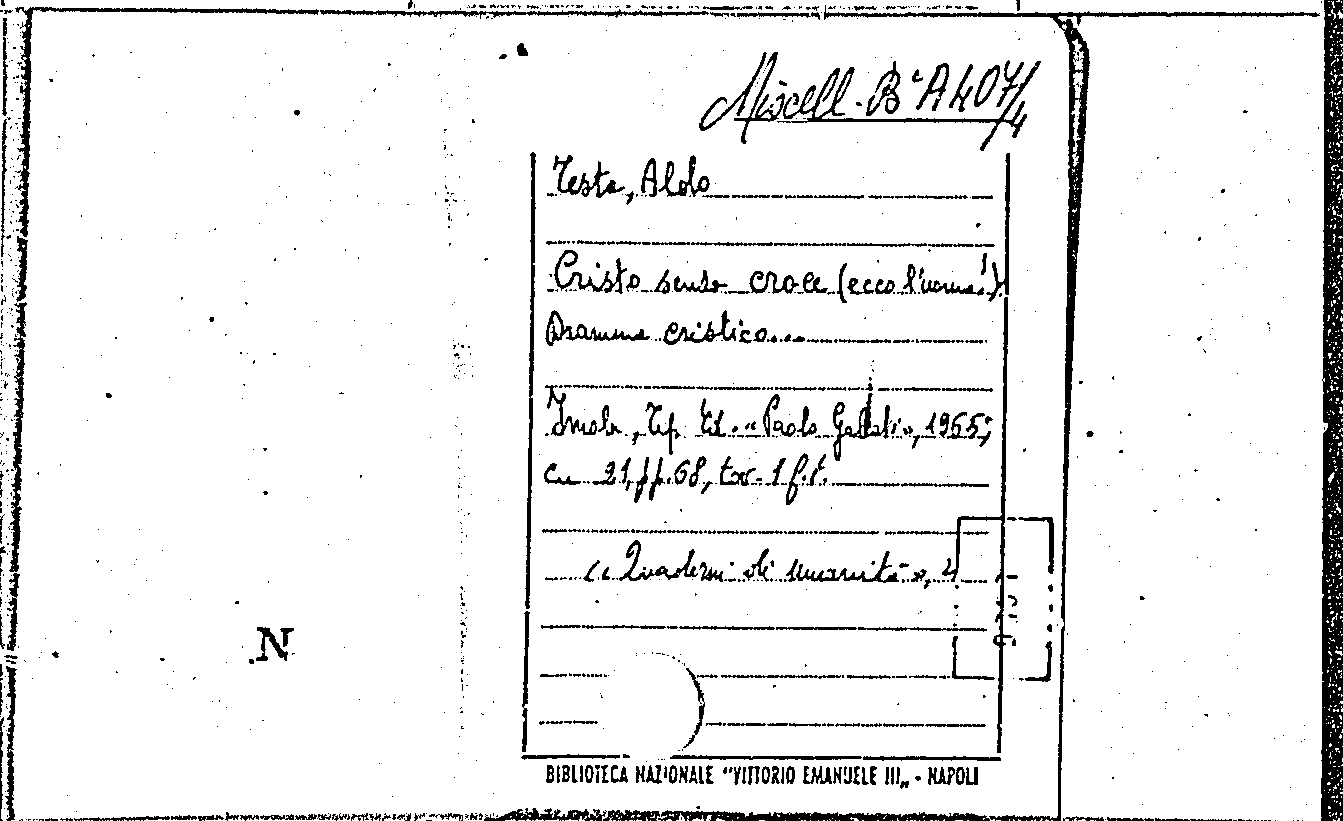 Miscell. B A 407/4
Testa, Aldo
Cristo senza croce (ecco l'uomo!).
Dramma cristico...
Imola, Tip. Ed. «Paolo Galeati», 1965;
cm 21, pp. 68, tav. 1 f.t.
«Quaderni di umanità», 4
N
BIBLIOTECA NAZIONALE "VITTORIO EMANUELE III„ - NAPOLI